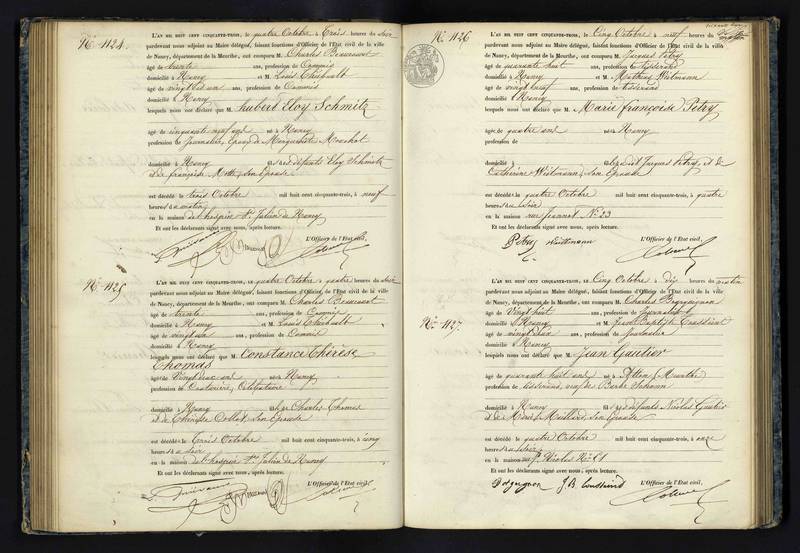 No. 1124.
L'AN MIL HUIT CENT CINQUANTE-TROIS, le quatre Octobre à trois heures du soir
pardevant nous adjoint au Maire délégué, faisant fonctions d'Officier de l'Etat civil de la ville
de Nancy, département de la Meurthe, ont comparu M. Charles Beaucourt
âgé de trente ans, profession de Commis
domicilié à Nancy et M. Louis Thiébault
âgé de vingt un ans, profession de Commis
domicilié à Nancy
lesquels nous ont déclaré que M. hubert Eloy Schmitz
âgé de cinquante neuf ans né à Nancy
profession de Journalier, Epoux de Marguerite
domicilié à Nancy défunts Eloy Schmitz
et de françoise son Epouse
est décédé le trois Octobre mil huit cent cinquante-trois, à neuf
heures du matin
en la maison de l'hospice St. Julien de Nancy
Et ont les déclarants signé avec nous, après lecture.
L'Officier de l'Etat civil,
No. 1125
L'AN MIL HUIT CENT CINQUANTE-TROIS, le quatre Octobre à quatre heures du soir
pardevant nous adjoint au Maire délégué, faisant fonctions d'Officier de l'Etat civil de la ville
de Nancy, département de la Meurthe, ont comparu M. Charles Beaucourt
âgé de trente ans, profession de Commis
domicilié à Nancy et M. Louis Thiébault
âgé de vingt un ans, profession de Commis
domicilié à Nancy
lesquels nous ont déclaré que M. Constance Thérèse
Thomas
âgé de vingt ans né à Nancy
profession de Couturière, Célibataire
domicilié à Nancy Charles Thomas
et de Thérèse Collot, son Epouse
est décédé le trois Octobre mil huit cent cinquante-trois, à cinq
heures du soir
en la maison de l'hospice St. Julien de Nancy
Et ont les déclarants signé avec nous, après lecture.
L'Officier de l'Etat civil,
No. 1126
L'AN MIL HUIT CENT CINQUANTE-TROIS, le Cinq Octobre à neuf heures du matin
pardevant nous adjoint au Maire délégué, faisant fonctions d'Officier de l'Etat civil de la ville
de Nancy, département de la Meurthe, ont comparu M. Jacques Petry
âgé de quarante huit ans, profession de tisserand
domicilié à Nancy et M. Mathias
âgé de vingt neuf ans, profession de tisserand
domicilié à Nancy
lesquels nous ont déclaré que M. Marie françoise Petry
âgé de quatre ans né à Nancy
profession de
domicilié à Jacques Petry, et de
Catherine son Epouse
est décédé le quatre Octobre mil huit cent cinquante-trois, à quatre
heures du soir
en la maison rue Jeannot No. 23
Et ont les déclarants signé avec nous, après lecture.
L'Officier de l'Etat civil,
Petry
No. 1127.
L'AN MIL HUIT CENT CINQUANTE-TROIS, le Cinq Octobre à dix heures du matin
pardevant nous adjoint au Maire délégué, faisant fonctions d'Officier de l'Etat civil de la ville
de Nancy, département de la Meurthe, ont comparu M. Charles
âgé de vingt huit ans, profession de Journalier
domicilié à Nancy et M. Jean Baptiste Toussaint
âgé de vingt ans, profession de
domicilié à Nancy
lesquels nous ont déclaré que M. Jean Gautier
âgé de quarante huit ans né à (Meurthe)
profession de tisserand, veuf de Barbe
domicilié à Nancy défunts Nicolas Gautier
et de Marie son Epouse
est décédé le quatre Octobre mil huit cent cinquante-trois, à onze
heures du soir
en la maison rue St. Nicolas No. 61
Et ont les déclarants signé avec nous, après lecture.
L'Officier de l'Etat civil,
J. B. Toussaint